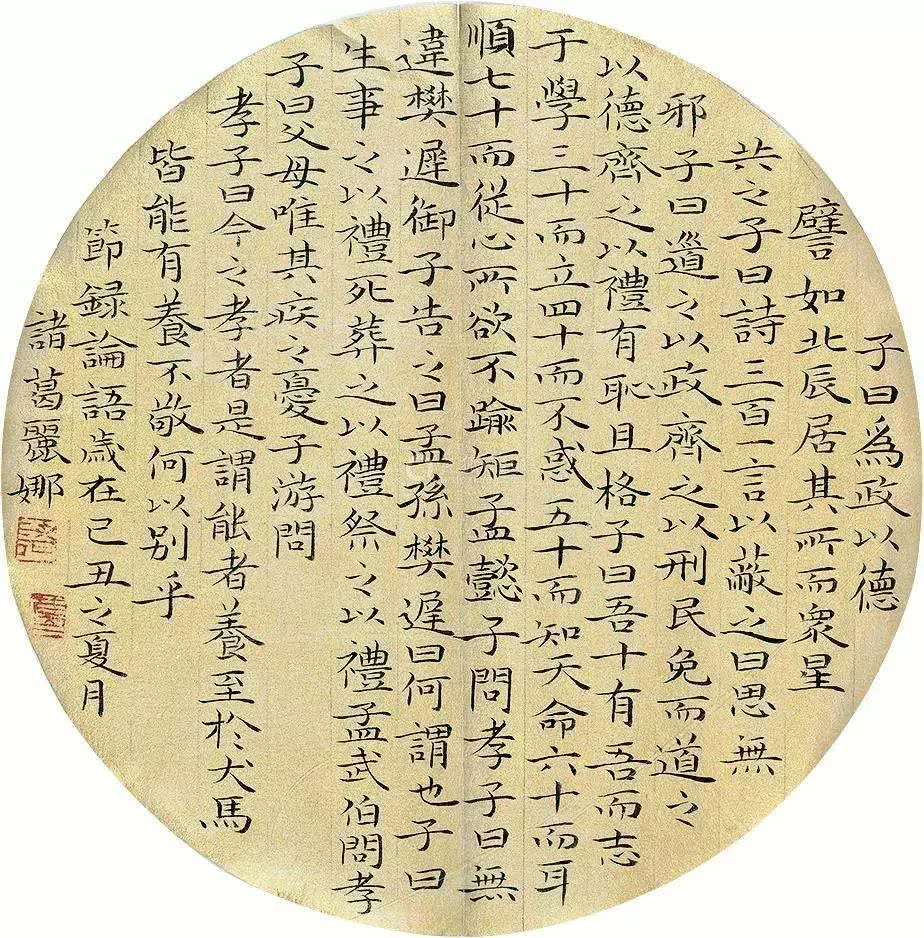 子曰爲政以德
譬如北辰居其所而衆星
共之子曰詩三百一言以蔽之曰思無
邪子曰道之以政齊之以刑民免而道之
以德齊之以禮有恥且格子曰吾十有吾而志
于學三十而立四十而不惑五十而知天命六十而耳
順七十而従心所欲不踰矩孟懿子問孝子曰無
違樊遲御子告之曰孟孫樊遲曰何謂也子曰
生事之以禮死葬之以禮祭之以禮孟武伯問孝
子曰父母唯其疾之憂子游問
孝子曰今之孝者是謂能者養至於犬馬
皆能有養不敬何以别乎
節録論語歲在己丑之夏月
諸葛麗娜